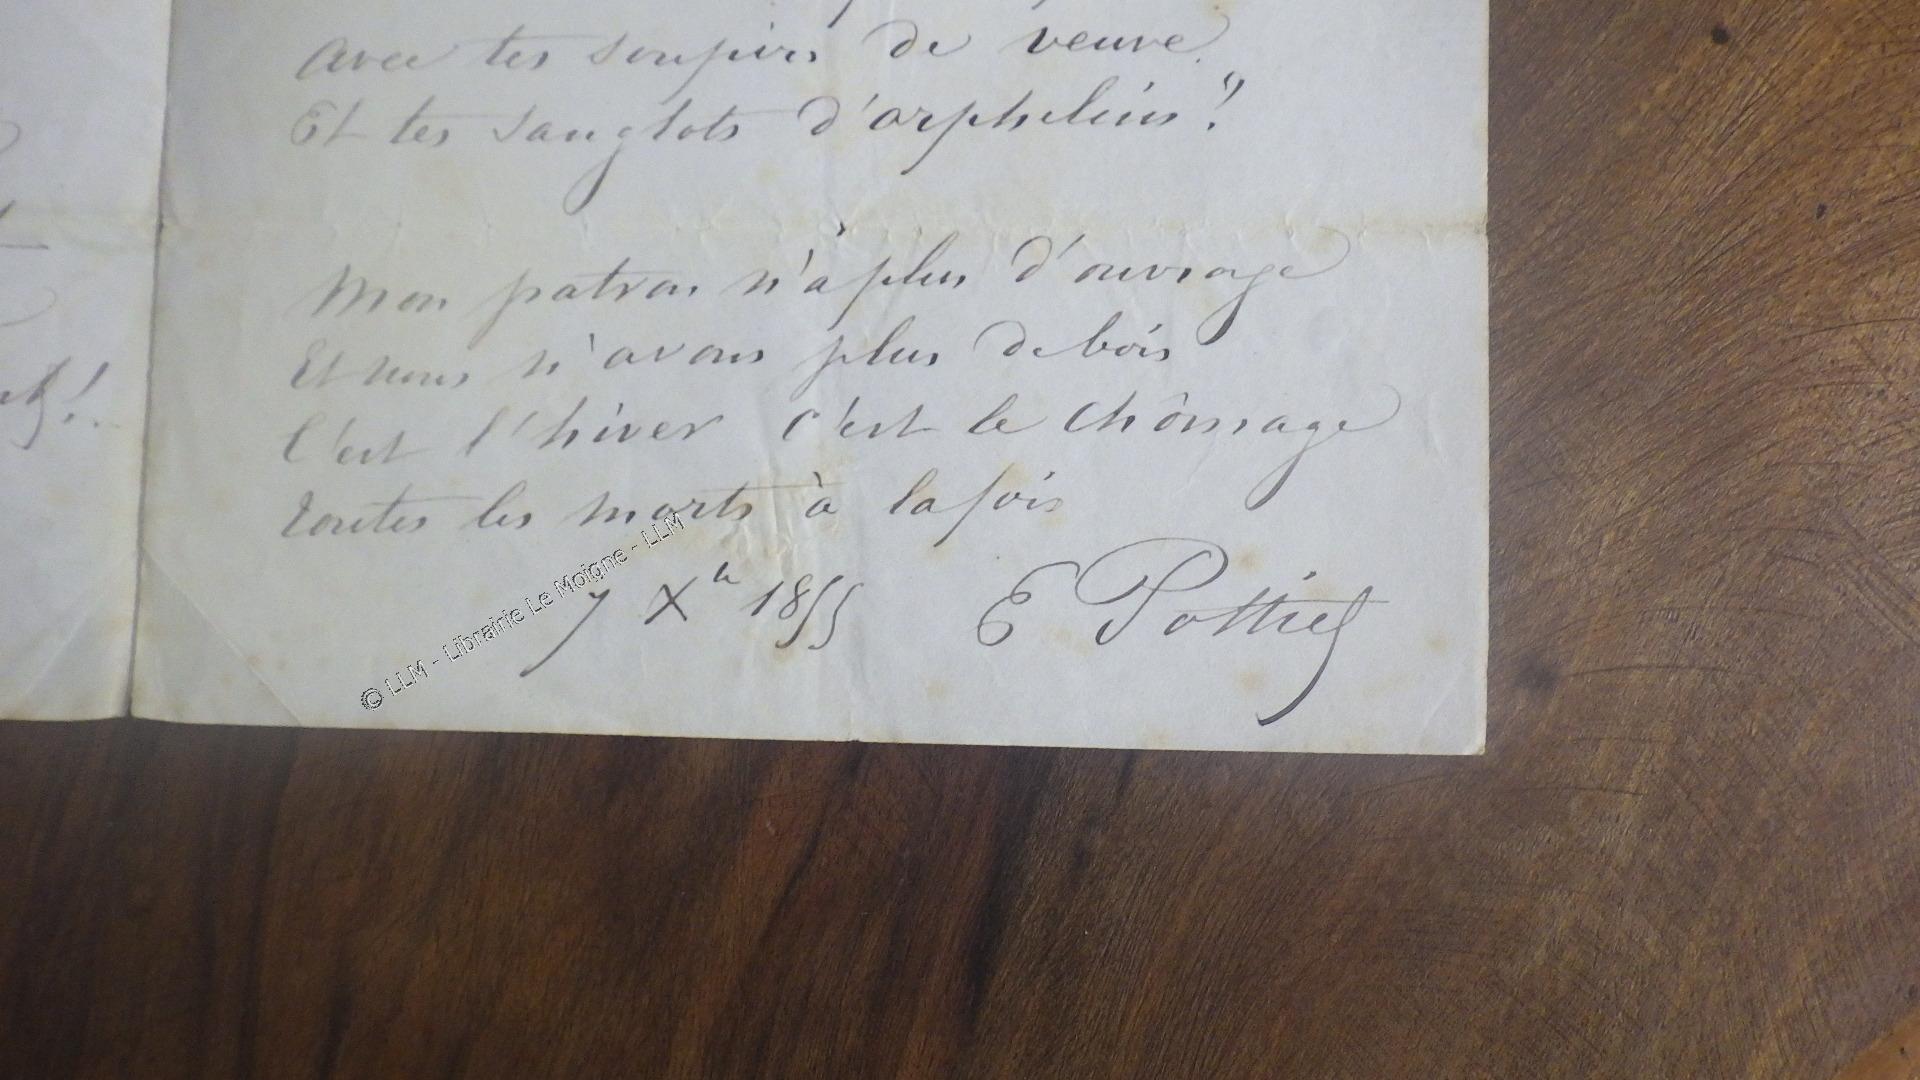 Avec tes soupirs de veuve
Et tes sanglots d'orphelins"!
Mon patron n'a plus d'ouvrage
Et nous n'avons plus de bois
C'est l'hiver c'est le chômage
toutes les morts à la fois
7 Xbre 1855 E Pottier
© LLM - Librairie Le Moigne - LLM